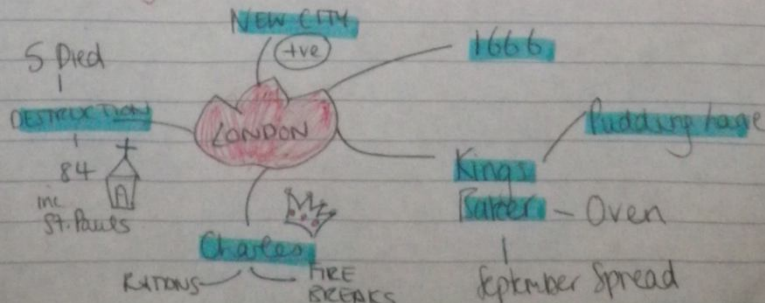 NEW CITY
+ve
1666
5 Died
DESTRUCTION
LONDON
Pudding lane
84
inc
St. Pauls
Kings
Baker - Oven
Charles
RATIONS
FIRE
BREAKS
September Spread